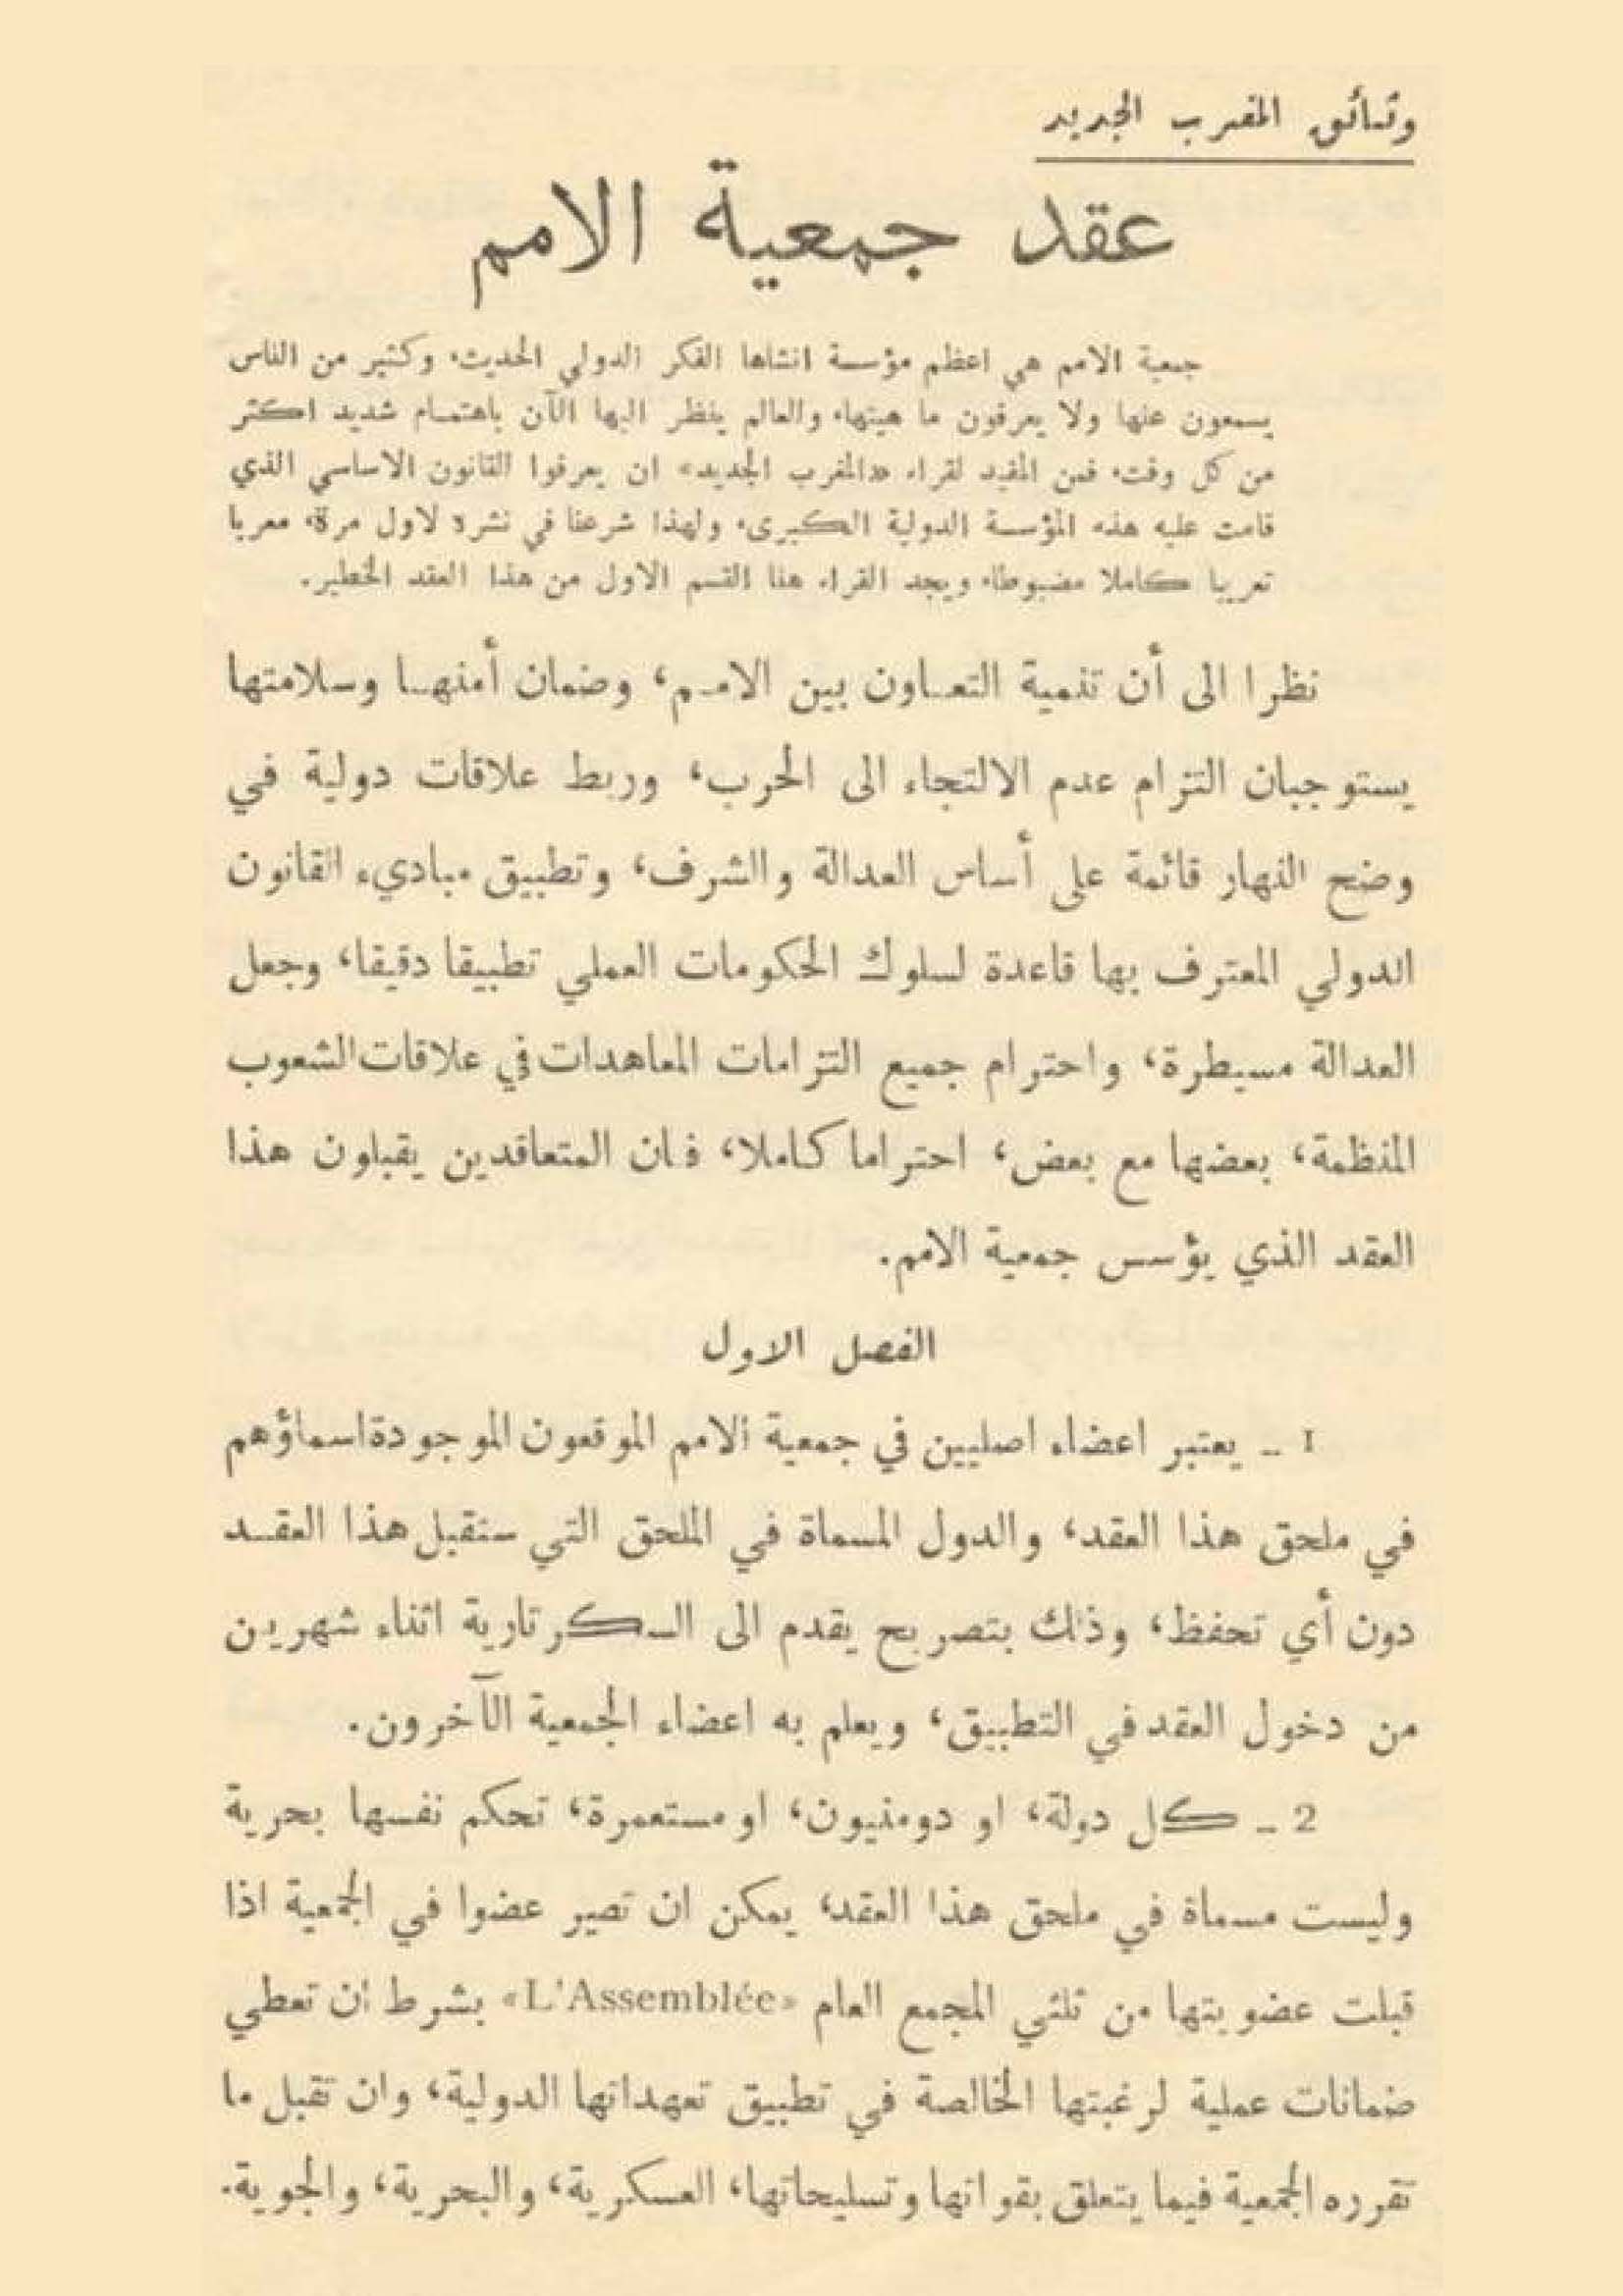 وثائق المغرب الجديد
عقد جمعية الامم
جمعية الامم هي اعظم مؤسسة انشاها الفكر الدولي الحديث، وكثير من الناس
يسمعون عنها ولا يعرفون ما هيتها، والعالم ينظر اليها الآن باهتمام شديد اكثر
من كل وقت، فمن المفيد لقراء «المغرب الجديد» ان يعرفوا القانون الاساسي الذي
قامت عليه هذه المؤسسة الدولية الكبرى، ولهذا شرعنا في نشره لاول مرة، معربا
تعريبا كاملا مضبوطا، ويجد القراء هنا القسم الاول من هذا العقد الخطير.
نظرا الى أن تنمية التعاون بين الامم، وضمان أمنهـا وسلامتها
يستوجبان التزام عدم الالتجاء الى الحرب، وربط علاقات دولية في
وضح النهار قائمة على أساس العدالة والشرف، وتطبيق مباديء القانون
الدولي المعترف بها قاعدة لسلوك الحكومات العملي تطبيقا دقيقا، وجعل
العدالة مسيطرة، واحترام جميع التزامات المعاهدات في علاقات الشعوب
المنظمة، بعضها مع بعض، احتراما كاملا، فان المتعاقدين يقبلون هذا
العقد الذي يؤسس جمعية الامم.
الفصل الاول
1 ـ يعتبر اعضاء اصليين في جمعية الامم الموقعون الموجودة اسماؤهم
في ملحق هذا العقد، والدول المسماة في الملحق التي ستقبل هذا العقـد
دون أي تحفظ، وذلك بتصريح يقدم الى السكرتارية اثناء شهرين
من دخول العقد في التطبيق، ويعلم به اعضاء الجمعية الآخرون.
2 ـ كل دولة، او دومنيون، او مستعمرة، تحكم نفسها بحرية
وليست مسماة في ملحق هذا العقد، يمكن ان تصير عضوا في الجمعية اذا
قبلت عضويتها من ثلثي المجمع العام «L'Assemblée» بشرط ان تعطي
ضمانات عملية لرغبتها الخالصة في تطبيق تعهداتها الدولية، وان تقبل ما
تقرره الجمعية فيما يتعلق بقواتها وتسليحاتها، العسكرية، والبحرية، والجوية.